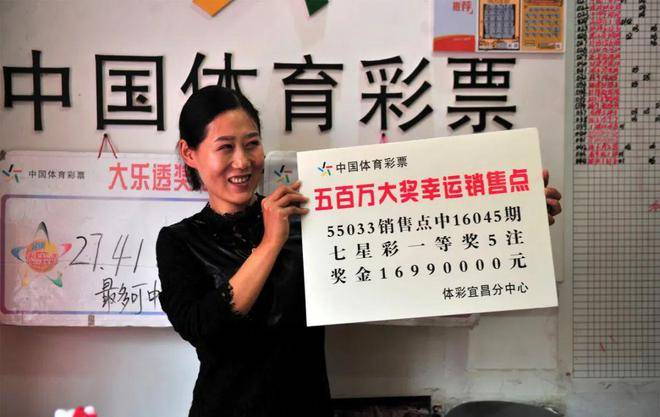 推荐
中国体育彩票
中国体育彩票
大乐透奖
27.41
最多可中
中国体育彩票
五百万大奖幸运销售点
55033销售点中16045期
七星彩一等奖5注
奖金16990000元
体彩宜昌分中心